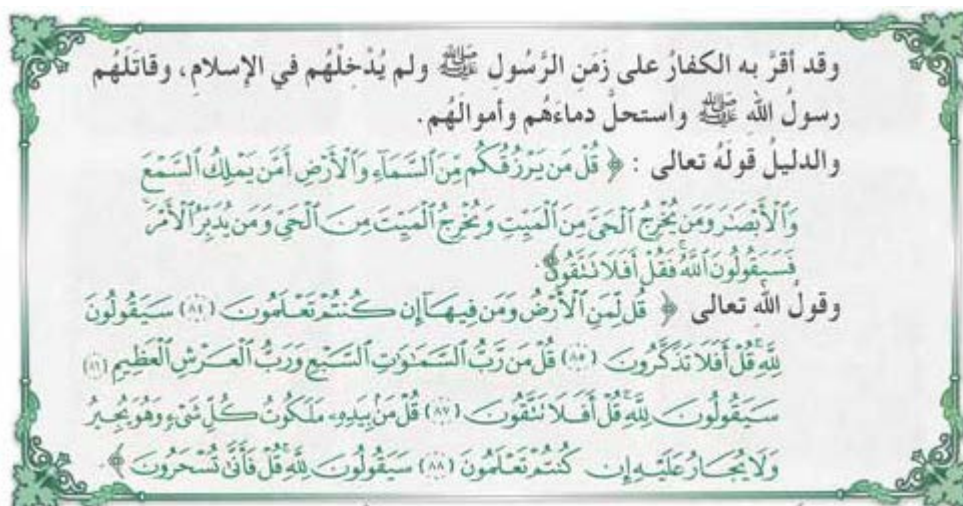 وقد أقرَّ به الكفارُ على زَمَنِ الرَّسُولِ ﷺ ولم يُدْخِلْهُم في الإسلامِ، وقاتَلَهُم
رسولُ اللهِ ﷺ واستحلَّ دماءَهُم وأموالَهُم.
والدليلُ قولُهُ تعالى : ﴿ قُلْ مَن يَرْزُقُكُم مِّنَ ٱلسَّمَآءِ وَٱلْأَرْضِ أَمَّن يَمْلِكُ ٱلسَّمْعَ
وَٱلْأَبْصَـٰرَ وَمَن يُخْرِجُ ٱلْحَىَّ مِنَ ٱلْمَيِّتِ وَيُخْرِجُ ٱلْمَيِّتَ مِنَ ٱلْحَىِّ وَمَن يُدَبِّرُ ٱلْأَمْرَ
فَسَيَقُولُونَ ٱللَّهُ ۚ فَقُلْ أَفَلَا نَتَّقُونَ ﴾.
وقولُ اللهِ تعالى ﴿ قُل لِّمَنِ ٱلْأَرْضُ وَمَن فِيهَآ إِن كُنتُمْ تَعْلَمُونَ (٨٤) سَيَقُولُونَ
لِلَّهِ ۚ قُلْ أَفَلَا تَذَكَّرُونَ (٨٥) قُلْ مَن رَّبُّ ٱلسَّمَـٰوَٰتِ ٱلسَّبْعِ وَرَبُّ ٱلْعَرْشِ ٱلْعَظِيمِ (٨٦)
سَيَقُولُونَ لِلَّهِ ۚ قُلْ أَفَلَا نَتَّقُونَ (٨٧) قُلْ مَنۢ بِيَدِهِۦ مَلَكُوتُ كُلِّ شَىْءٍ وَهُوَ يُجِيرُ
وَلَا يُجَارُ عَلَيْهِ إِن كُنتُمْ تَعْلَمُونَ (٨٨) سَيَقُولُونَ لِلَّهِ ۚ قُلْ فَأَنَّىٰ تُسْحَرُونَ ﴾.